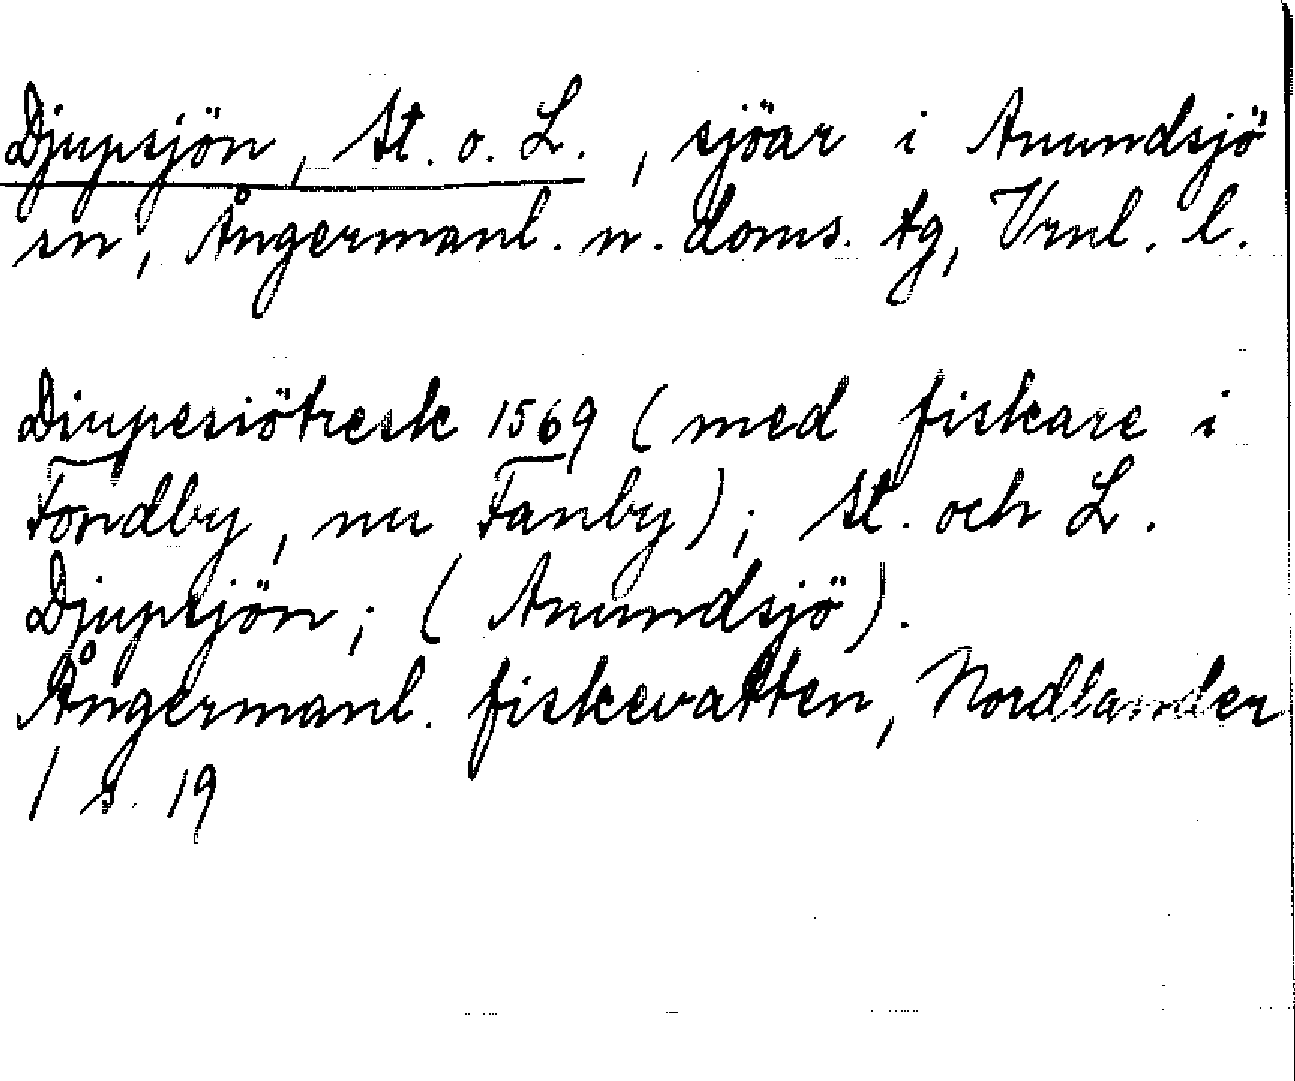 Djupsjön, St. o. L., sjöar i Anundsjö
sn, Ångermanl. n. doms. tg, Vrnl. l.
Diupesiötresk 1569 (med fiskare i
Tondby, nu Tanby); St. och L.
Djupsjön; (Anundsjö).
Ångermanl. fiskevatten, Nordlander
/ s. 19